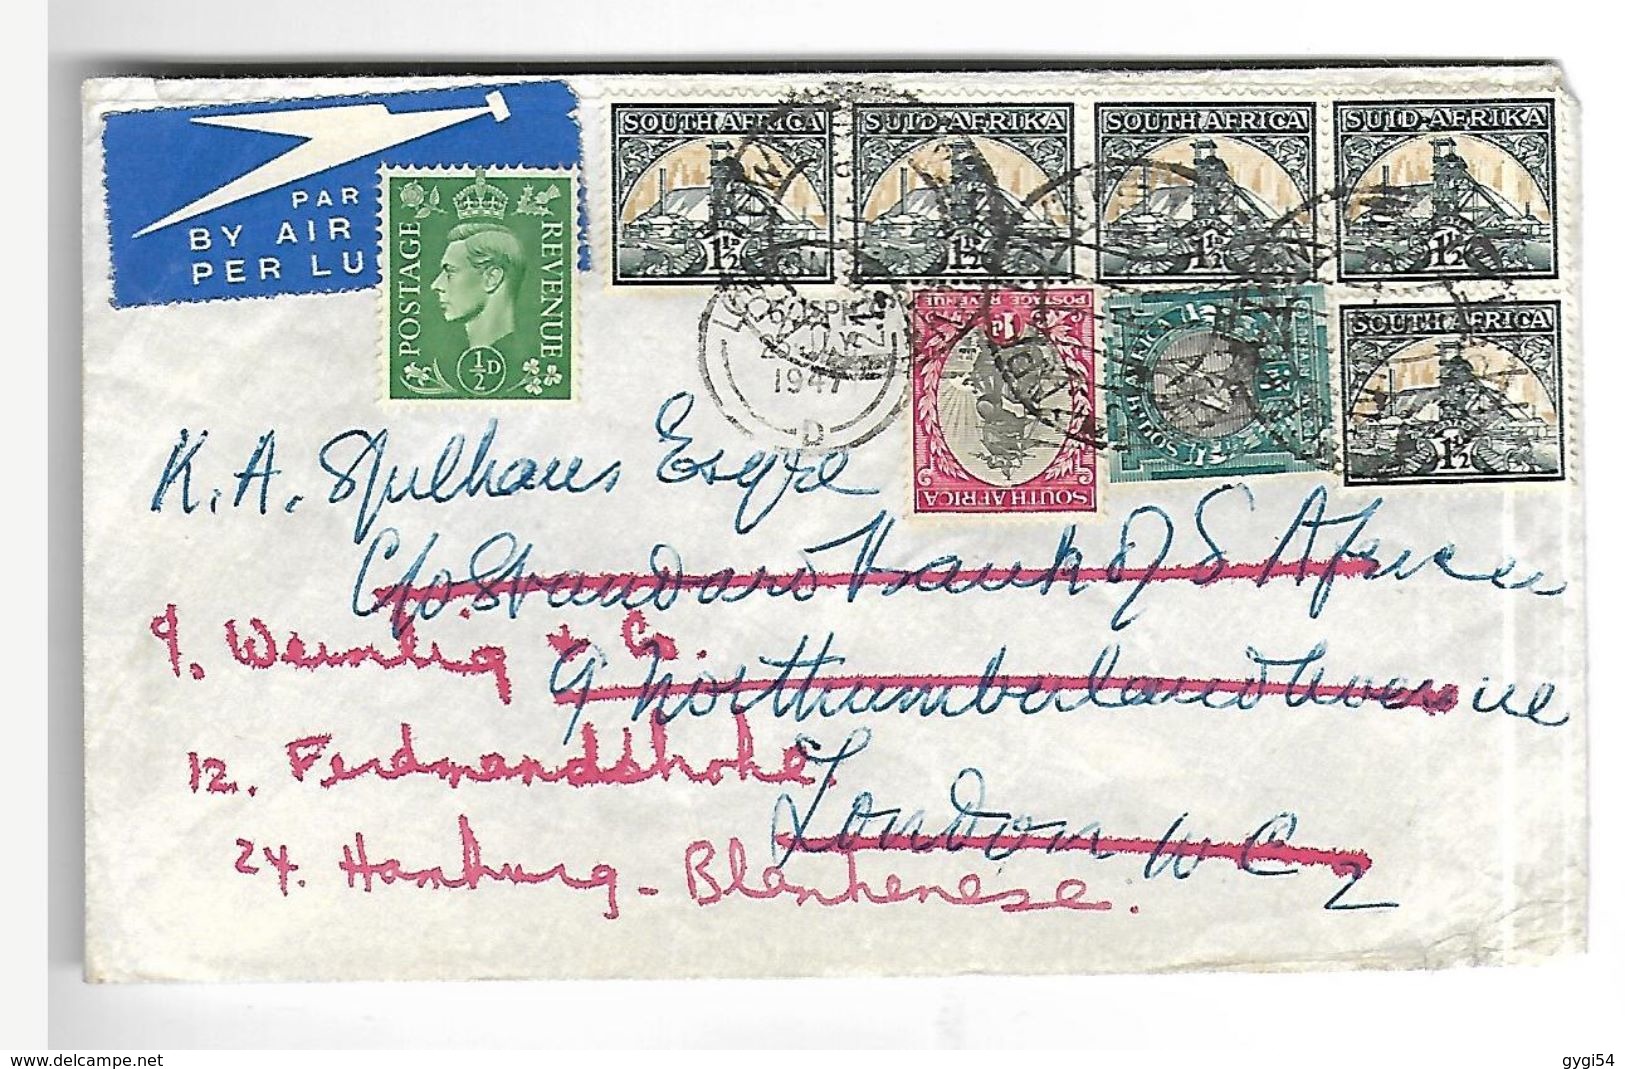 PAR
BY AIR
PER LU
POSTAGE
REVENUE
½D
SOUTH AFRICA
1½D
SUID-AFRIKA
1½D
SOUTH AFRICA
1½D
SUID-AFRIKA
1½D
SOUTH AFRICA
1½D
POSTAGE REVENUE
1D
SOUTH AFRICA
SOUTH AFRICA
1947
D
K. A. Spilhaus Esqre
C/o Standard Bank of S Africa
9 Northumberland Avenue
London W C 2
9. Weinlig & Co.
12. Ferdinandshohe.
24. Hamburg - Blankenese.
www.delcampe.net
gygi54